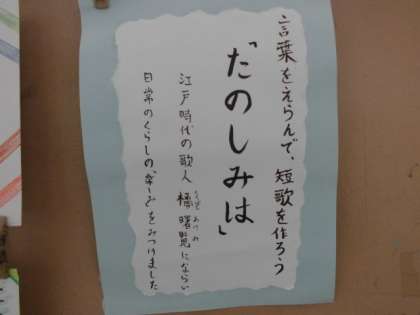 言葉をえらんで、短歌を作ろう
「たのしみは」
江戸時代の歌人 橘曙覧にならい
日常のくらしの"楽しみ"をみつけました